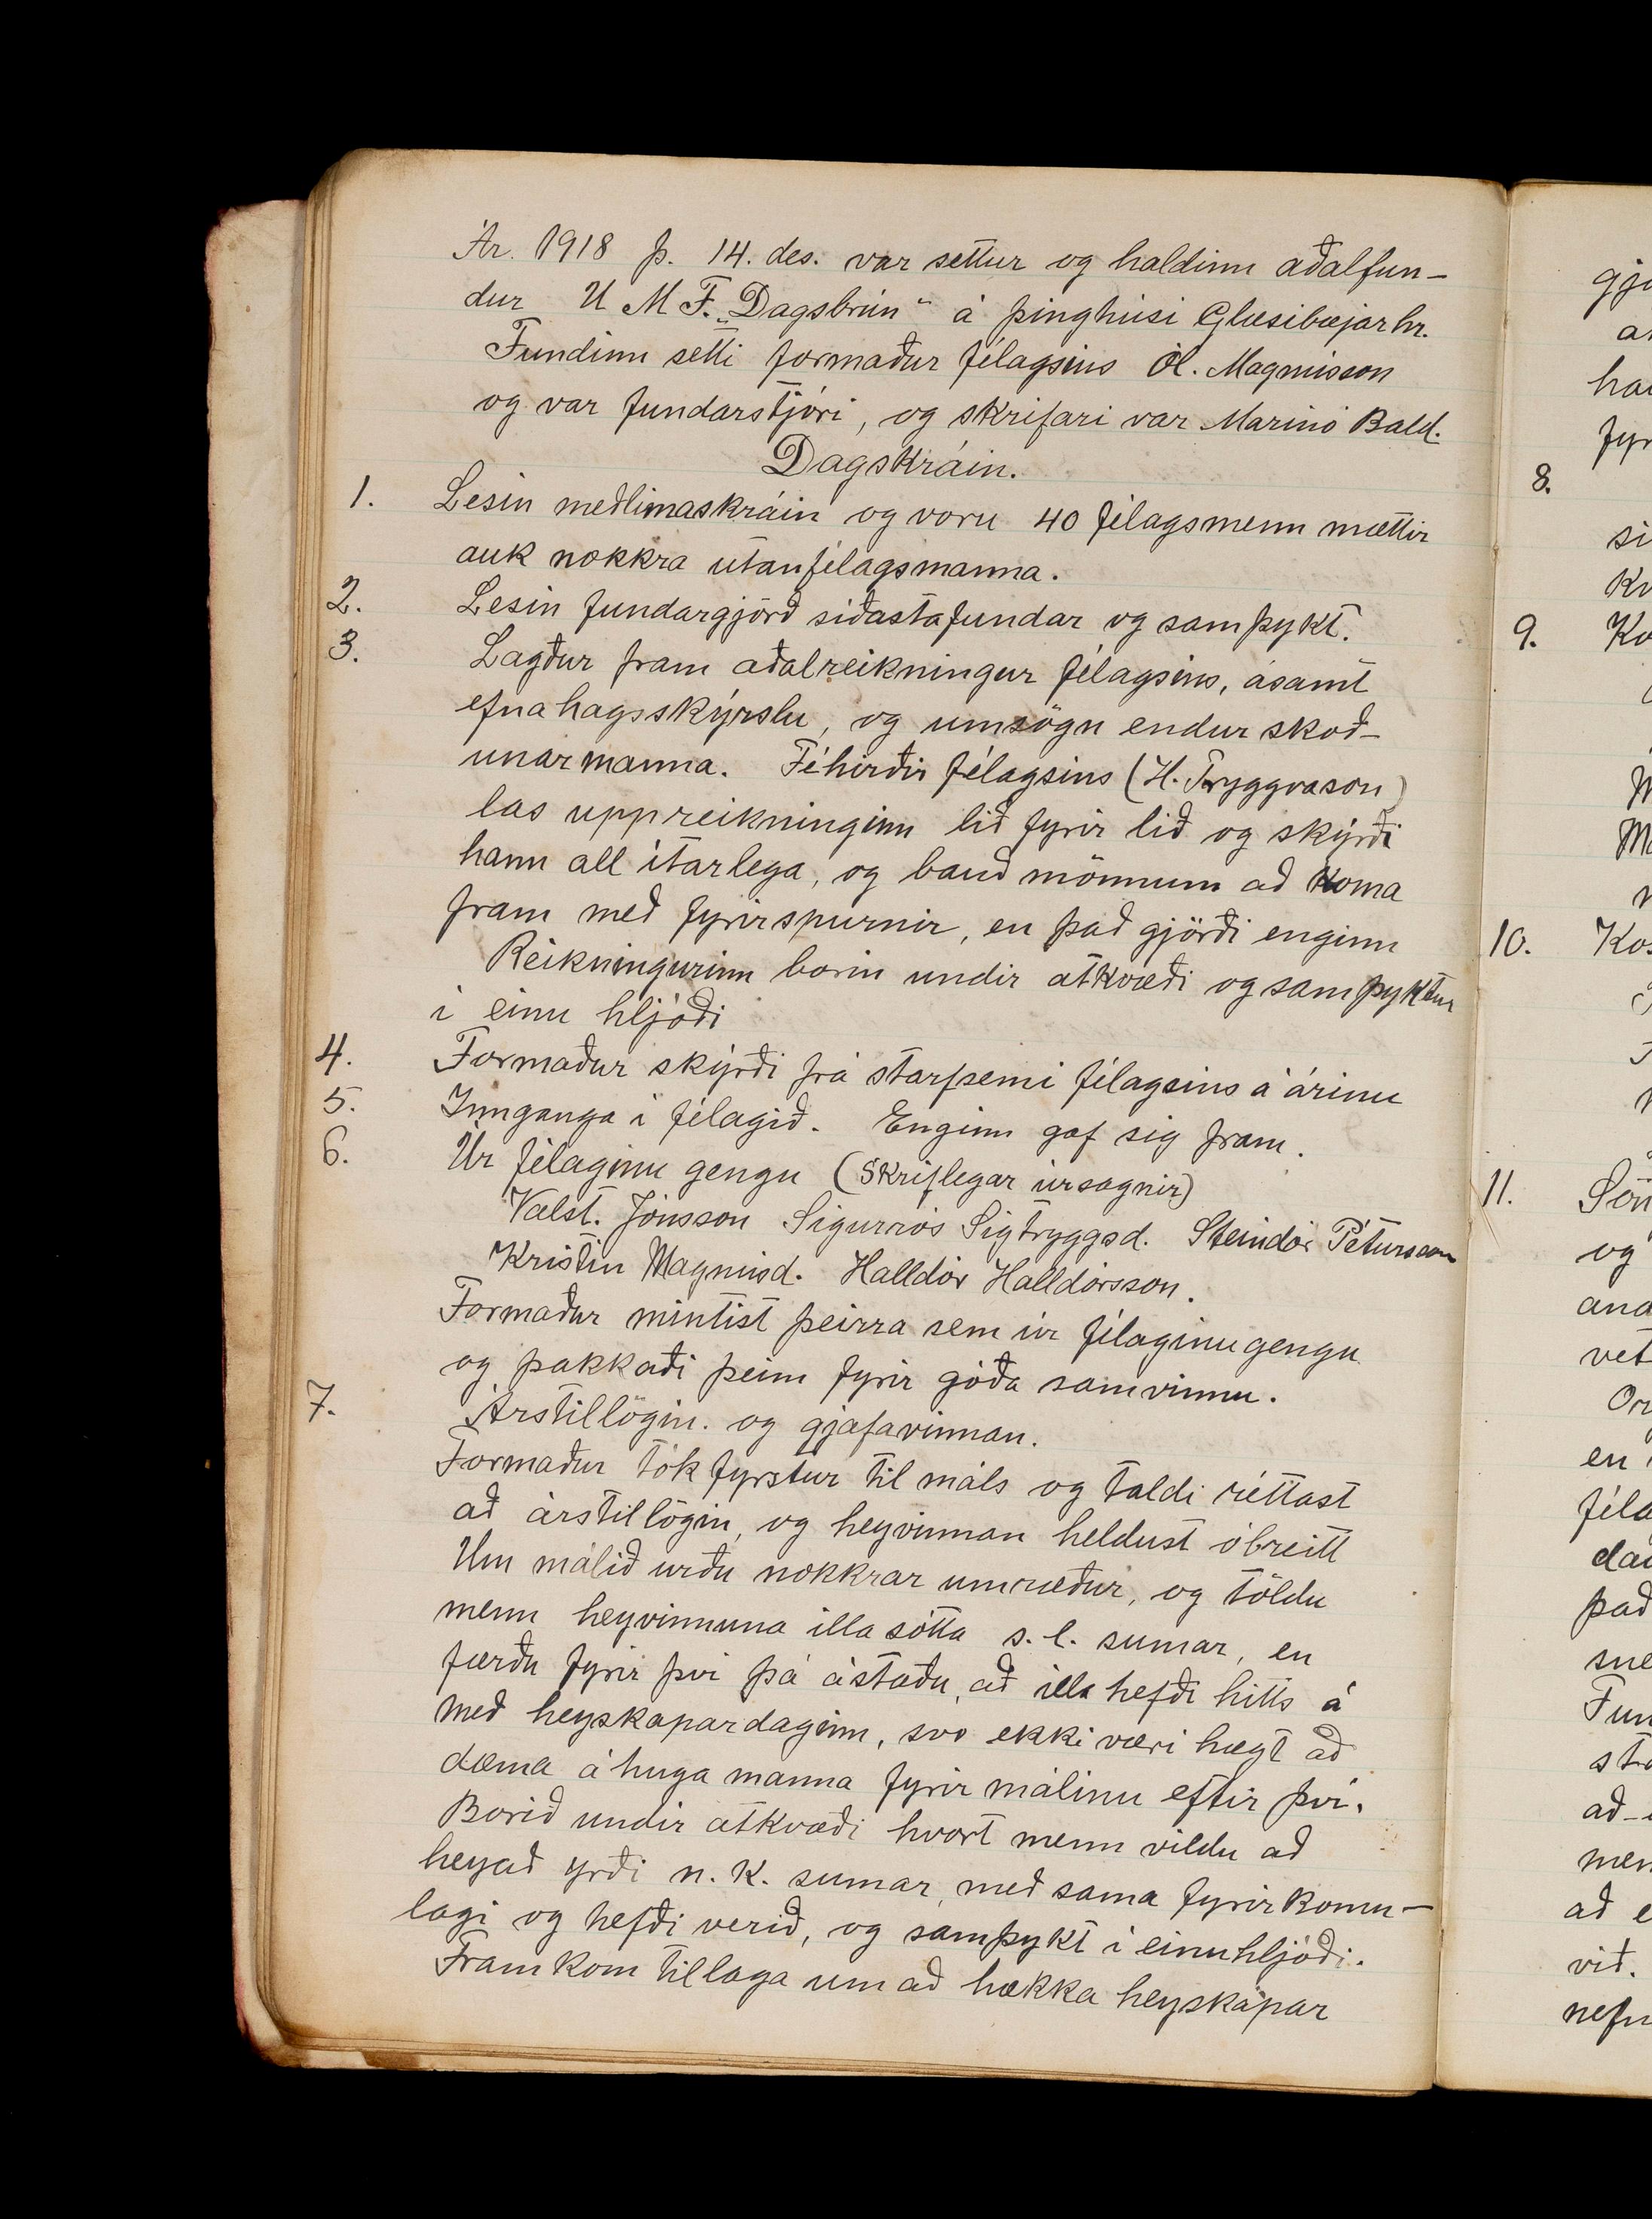 Ár. 1918 þ. 14. des. var settur og haldinn aðalfun-
dur U M F. „Dagsbrún“ á þinghúsi Glæsibæjarhr.
Fundinn setti formaður félagsins Ól. Magnússon
og var fundarstjóri, og skrifari var Marinó Bald.
Dagskráin.
1. Lesin meðlimaskráin og voru 40 félagsmenn mættir
auk nokkra utanfélagsmanna.
2. Lesin fundargjörð síðastafundar og samþykt.
3. Lagður fram aðalreikningur félagsins, ásamt
efnahagsskýrslu, og umsögn endurskoð-
unarmanna. Féhirðir félagsins (H. Tryggvason)
las uppreikninginn lið fyrir lið og skýrði
hann all ítarlega, og bauð mönnum að koma
fram með fyrirspurnir, en það gjörði enginn
Reikningurinn borin undir atkvæði og samþyktur
í einu hljóði
4. Formaður skýrði frá starfsemi félagsins á árinu
5. Innganga í félagið. Enginn gaf sig fram.
6. Úr félaginu gengu (skriflegar úrsagnir)
Valst. Jónsson Sigurrós Sigtryggsd. Steindór Pétursson
Kristín Magnúsd. Halldór Halldórsson.
Formaður mintist þeirra sem úr félaginu gengu
og þakkaði þeim fyrir góða samvinnu.
7. Árstillögin. og gjafavinnan.
Formaður tók fyrstur til máls og taldi réttast
að árstillögin, og heyvinnan heldust óbreitt
Um málið urðu nokkrar umræður, og töldu
menn heyvinnuna illa sótta s.l. sumar, en
færðu fyrir því þá ástæðu, að illa hefði hitts á
með heyskapardaginn, svo ekki væri hægt að
dæma áhuga manna fyrir málinu eftir því.
Borið undir atkvæði hvort menn vildu að
heyað yrði n.k. sumar, með sama fyrirkomu-
lagi og hefði verið, og samþykt í einuhljóði.
Fram kom tillaga um að hækka heyskapar
8.
9.
10.
11.